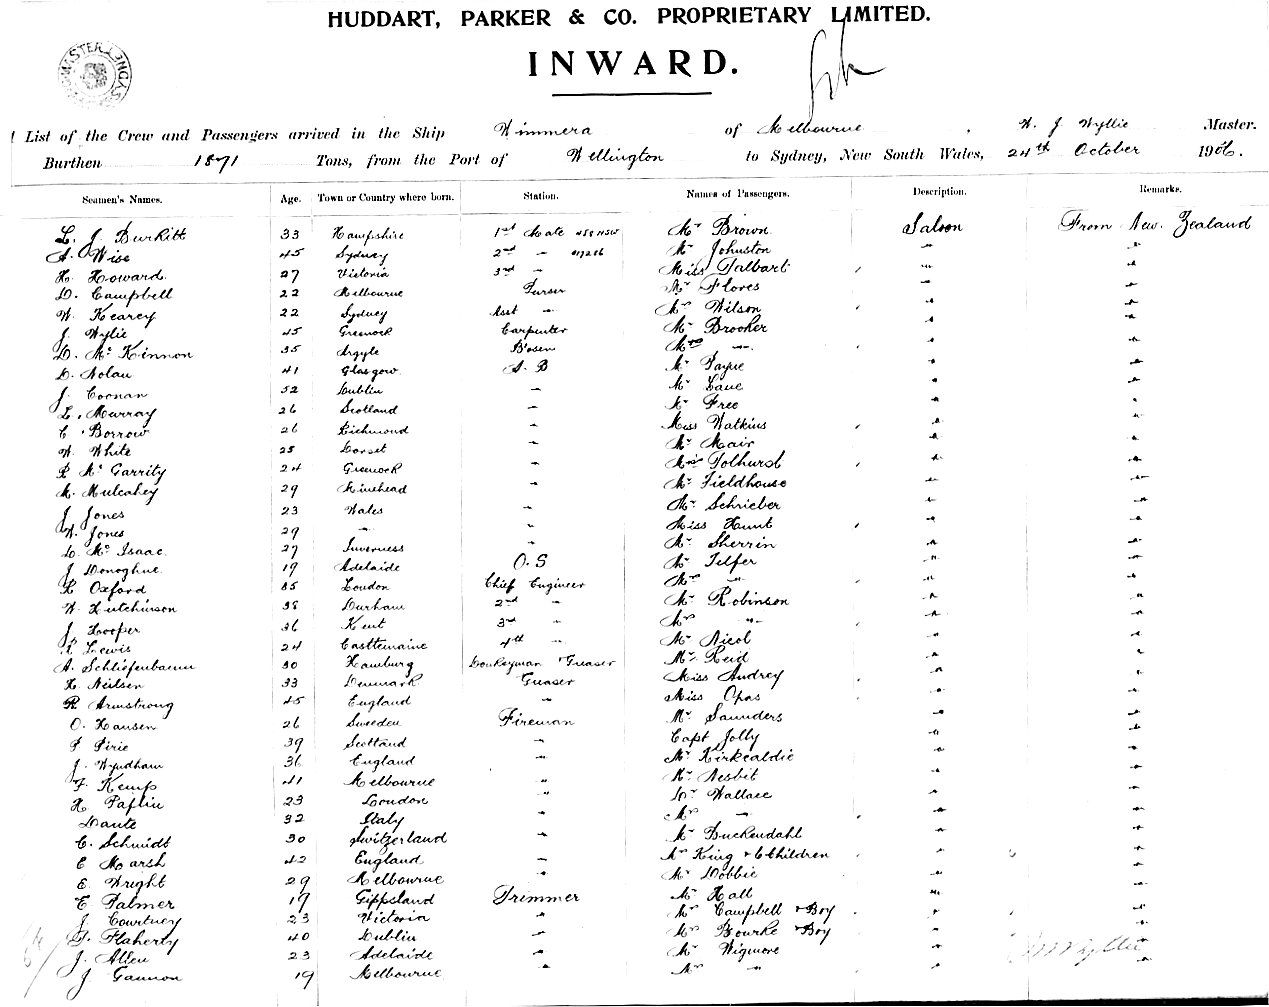 HUDDART, PARKER & CO. PROPRIETARY LIMITED.
INWARD.
List of the Crew and Passengers arrived in the Ship Wimmera of Melbourne, W. J Wyllie Master.
Burthen 1871 Tons, from the Port of Wellington to Sydney, New South Wales, 24th October 1906.
Seamen's Names. Age. Town or Country where born. Station. Names of Passengers. Description. Remarks.
L. J Burkitt 33 Hampshire 1st Mate Mr Brown Saloon From New Zealand
A. Wise 45 Sydney 2nd " Mr Johnston " "
H. Howard 27 Victoria 3rd " Miss Talbart " "
D. Campbell 22 Melbourne Purser Mr Flores " "
W. Kearey 22 Sydney Asst " Mr Wilson " "
J. Wylie 45 Greenock Carpenter Mr Brooker " "
D. Mc Kinnon 35 Argyle Bosen Mrs " " "
D. Nolan 41 Glasgow A. B Mr Payne " "
J. Coonan 52 Dublin " Mr Lane " "
L. Murray 26 Scotland " Mr Free " "
C. Borrow 26 Richmond " Miss Watkins " "
W. White 25 Dorset " Mr Mair " "
P. Mc Garrity 24 Greenock " Miss Tolhurst " "
M. Mulcahey 29 Kinehead " Mr Fieldhouse " "
J Jones 23 Wales " Mr Schrieber " "
W. Jones 29 " " Miss Hunt " "
D. Mc Isaac 27 Inverness " Mr Sherrin " "
J Donoghue 19 Adelaide O. S Mr Telfer " "
R Oxford 35 London Chief Engineer Mrs " " "
W. Hutchinson 38 Durham 2nd " Mr Robinson " "
J. Hooper 36 Kent 3rd " Mrs " " "
R Lewis 24 Castlemaine 4th " Mr Nicol " "
A. Schliefenbaum 30 Hamburg Donkeyman Greaser Mr Reid " "
H. Neilsen 33 Denmark Greaser Miss Audrey " "
R Armstrong 45 England " Miss Opas " "
O. Hansen 26 Sweden Fireman Mr Saunders " "
P Pirie 39 Scotland " Capt Jolly " "
J. Wyndham 36 England " Mr Kirkcaldie " "
F. Kemp 41 Melbourne " Mr Nesbit " "
H. Paplin 23 London " Dr Wallace " "
Dante 32 Italy " Mrs " " "
C. Schmidt 30 Switzerland " Mr Buckendahl " "
E Marsh 42 England " Mrs King & 6 Children " "
E. Wright 29 Melbourne " Mr Dobbie " "
E Palmer 19 Gippsland Trimmer Mr Hall " "
J. Courtney 23 Victoria " Mrs Campbell & Boy " "
T. Flaherty 40 Dublin " Mrs Bourke & Boy " "
J. Allen 23 Adelaide " Mr Wigmore " "
J Gannon 19 Melbourne " Mrs " " "
W J Wyllie